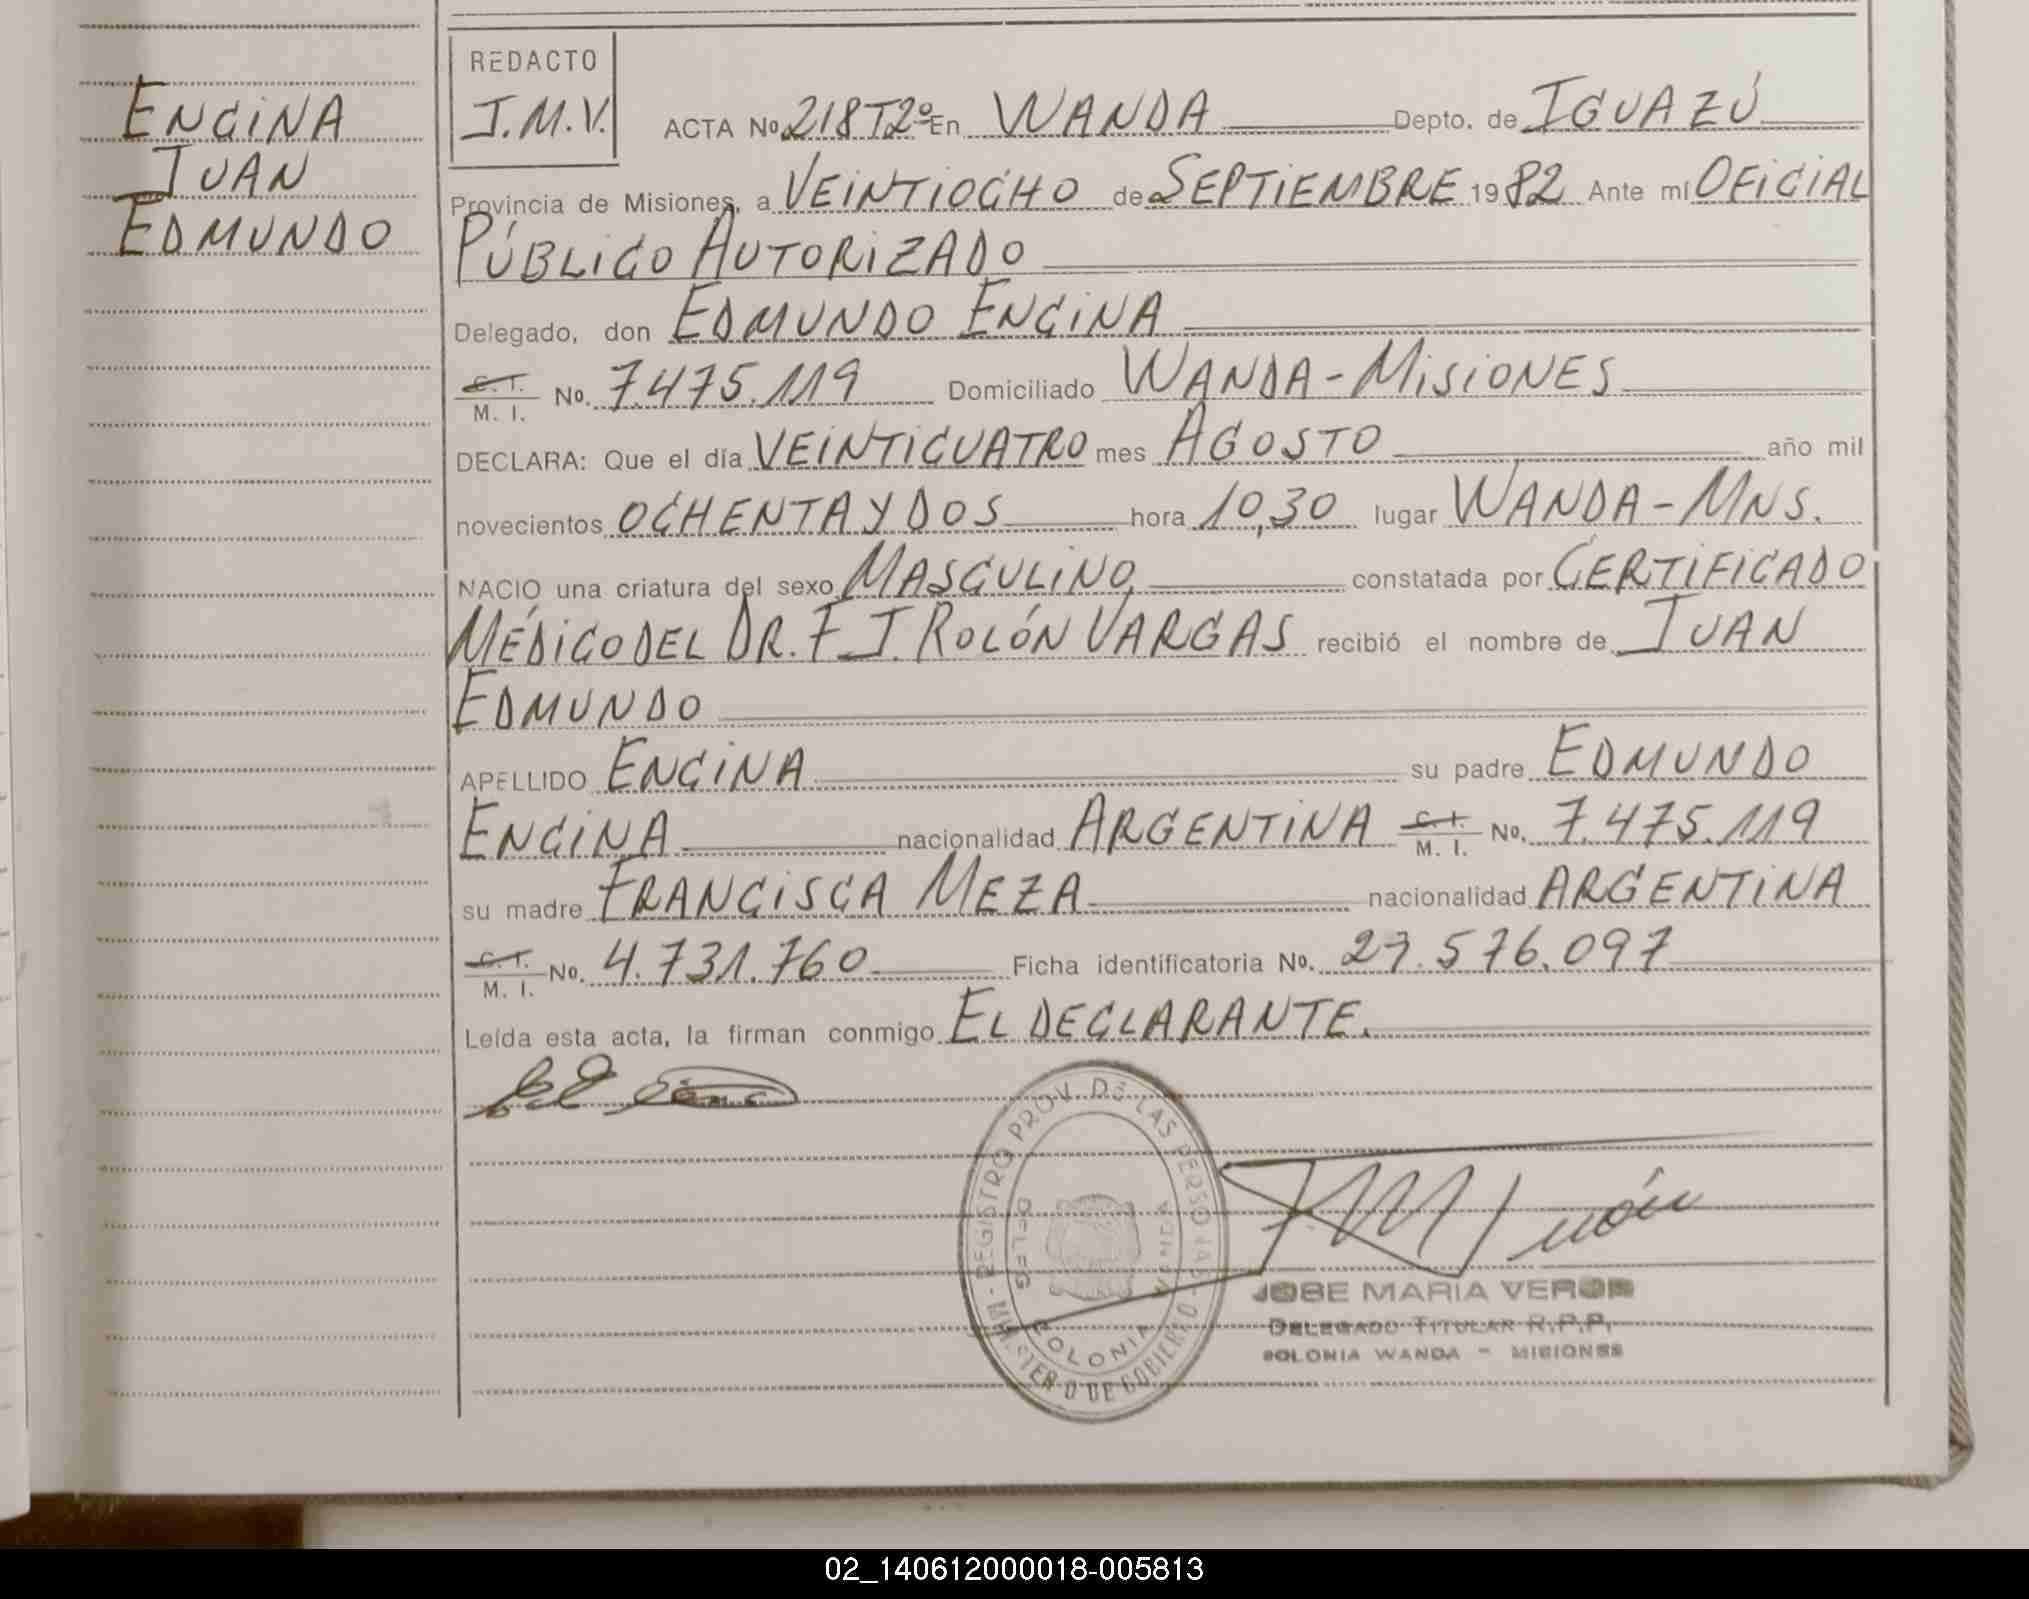 ENCINA
JUAN
EDMUNDO
REDACTO
J.M.V.
ACTA No 218T2º En WANDA Depto. de IGUAZÚ
Provincia de Misiones, a VEINTIOCHO de SEPTIEMBRE 1982 Ante mí OFICIAL
PÚBLICO AUTORIZADO
Delegado, don EDMUNDO ENCINA
C. I. M. I. No. 7.475.119 Domiciliado WANDA-MISIONES
DECLARA: Que el día VEINTICUATRO mes AGOSTO año mil
novecientos OCHENTA Y DOS hora 10,30 lugar WANDA-MNS.
NACIO una criatura del sexo MASCULINO constatada por CERTIFICADO
MÉDICO DEL DR. F. J. ROLÓN VARGAS recibió el nombre de JUAN
EDMUNDO
APELLIDO ENCINA su padre EDMUNDO
ENCINA nacionalidad ARGENTINA C. I. M. I. No. 7.475.119
su madre FRANCISCA MEZA nacionalidad ARGENTINA
C. I. M. I. No. 4.731.760 Ficha identificatoria No. 29.576.097
Leída esta acta, la firman conmigo EL DECLARANTE.
REGISTRO PROV. DE LAS PERSONAS - MINISTERIO DE GOBIERNO
DELEG. COLONIA WANDA
JOSE MARIA VERON
DELEGADO TITULAR R.P.P.
COLONIA WANDA - MISIONES
02_140612000018-005813